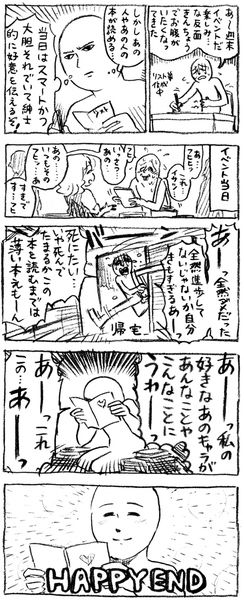 あー週末
イベントだ
楽しみ…
な反面
きんちょう
でお腹が
いたくなっ
てきました
リスト
作成中
しかしあの
人やあの人の
本が読める…
リスト
当日はスマートかつ
大胆それでいて紳士
的に好意を伝えるぞ!
イベント当日
あ…フヒッ…
あの…
いつも…
フヒヒ…
あの
いつもその
す…すて
あーっ全然ダメだった
全然進歩して
ないじゃないか自分
きもすぎるあーっ
帰宅
死にたい…
いや死んで
たまるかこの
本を読むまでは
あーっ私の
好きなあのキャラが
あんなことや
こんなことに
うわ
あーっこれ
この…あーっ
HAPPY END